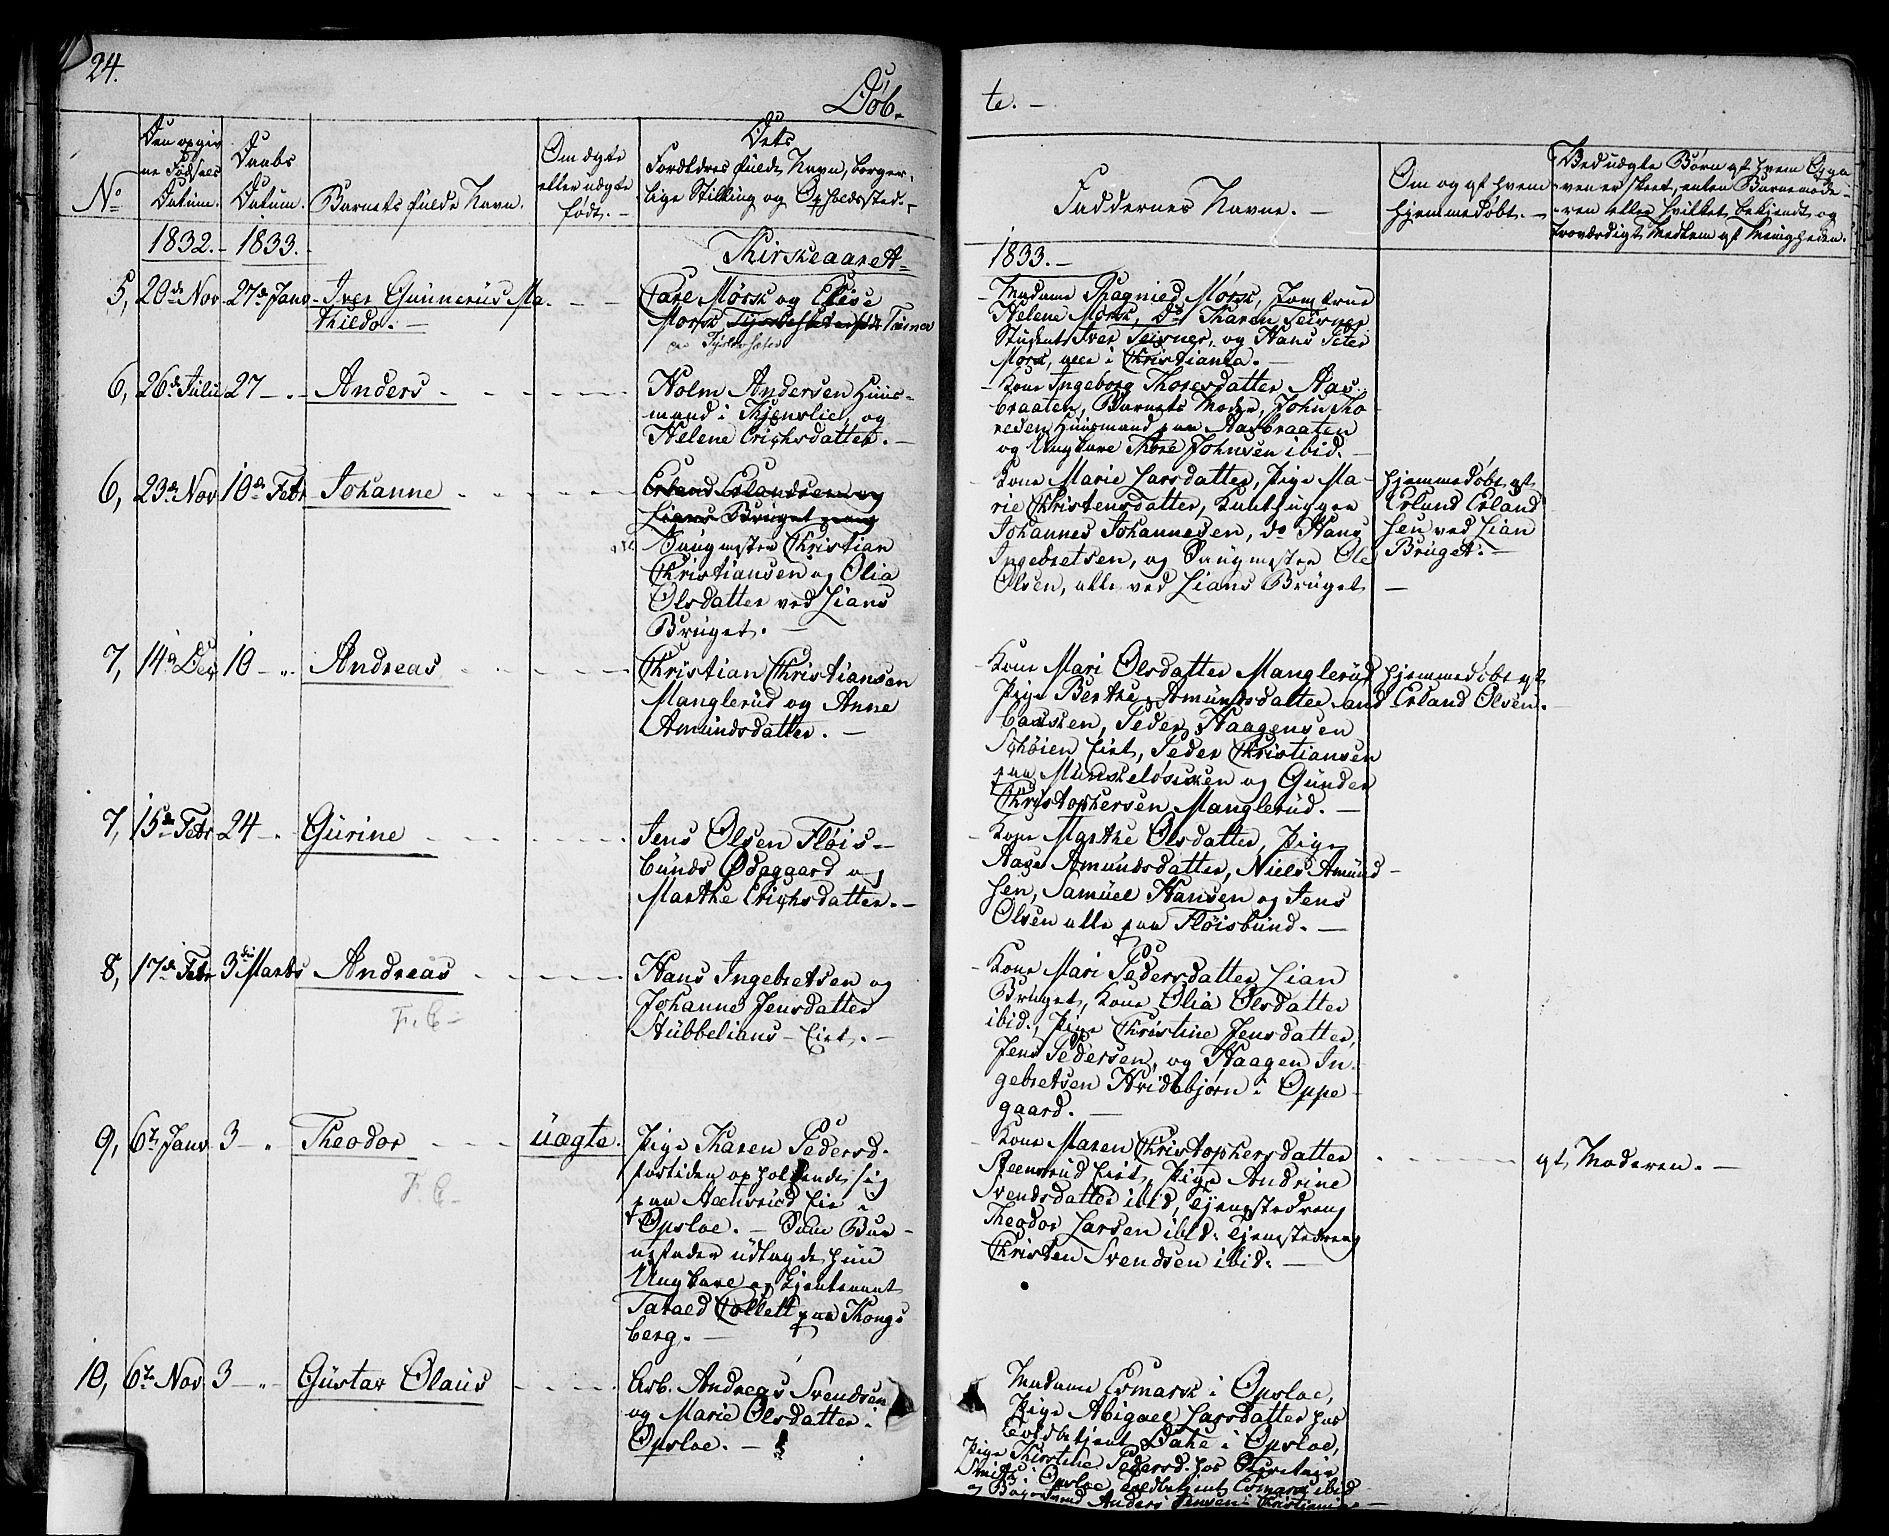 24.
Døb-
te. -
No
Den opgiv
ne Fødsels
Datum.
Daabs
Datum.
Barnets fulde Navn.
Om ægte
eller uægte
født. -
Dets
Forældres fulde Navn, borger-
lige Stilling og Opholdssted. -
Faddernes Navne. -
Om og af hvem
hjemmedøbt. -
Ved uægte Børn af hvem Opga
ven er skeet, enten Barnemode-
ren eller hvilket bekjendt og
troværdigt Medlem af Menigheden.
1832. - 1833. -
1833. -
5, 20de Nov 27de Janv Iver Gunnerus Ma-
thilda. -
Carl Mørch og Elise
Mørch
Madame Mørch, Jomfrue
Helene Mørch, do Karen
Student Iver og Hans Peter
Mørch, alle i Christiania. -
6, 26de Julii 27 - " - Anders - - - -
Holm Andersen Huus-
mand i og
Helene Erichsdatter. -
Kone Ingeborg Thoresdatter Aas-
braaten, Barnets Moder, John Tho
resen Huusmand paa Aasbraaten
og Ungkarl Thore Johnsen ibid. -
6, 23de Nov 10de Febr Johanne - - - -
Erland Erlandsen og
Lians Bruget
Saugmester Christian
Christiansen og Olia
Olsdatter ved Lians
Bruget. -
Kone Marie Larsdatter, Pige Ma-
rie Christensdatter, Kulhugger
Johannes Johannesen, do Hans
Ingebretsen, og Saugmester Ole
Olsen, alle ved Lians Bruget -
hjemmedøbt af
Erland Erland
sen ved Lian
Bruget. -
7, 14de Dec 10 - " - Andreas - - - -
Christian Christiansen
Manglerud og Anne
Amundsdatter. -
Kone Mari Olsdatter Manglerud
Pige Berthe Amundsdatter
Peder Haagensen
Schøien Eiet, Peder Christiansen
paa og Gunder
Christophersen Manglerud. -
hjemmedøbt af
Erland Olsen. -
7, 15de Febr 24 - " Gurine - - - -
Jens Olsen Fløis-
bunds Ødegaard og
Marthe Erichsdatter. -
Kone Marthe Olsdatter, Pige
Aase Amundsdatter, Niels Amund-
sen, Samuel Hansen og Jens
Olsen alle paa Fløisbund. -
8, 17de Febr 3die Marts Andreas - - - -
F. C -
Hans Ingebretsen og
Johanne Jensdatter
Hubbelians - Eiet. -
Kone Mari Pedersdatter Lian
Bruget, Kone Olia Olsdatter
ibid., Pige Christine Jensdatter,
Jens Pedersen, og Haagen In-
gebretsen Hvidebjørn i Oppe-
gaard. -
9, 6te Janv 3 - " Theodor - - - uægte.
F. C -
Pige Karen Pedersd.
fortiden opholdende sig
paa Eie i
Opsloe. - Som Bar-
nefader udlagde hun
Ungkarl og Lieutenant
Collett paa Kongs
berg. -
Kone Maren Christophersdatter
Eiet, Pige Andrine
Svendsdatter ibid, Tjenestedreng
Theodor Larsen ibid. Tjenestedreng
Christen Svendsen ibid. -
af Moderen. -
10, 6te Nov 3 - " - Gustav Olaus - - - -
Arb. Andreas Svendsen
og Marie Olsdatter i
Opsloe. -
Madame Esmark i Opsloe,
Pige Abigael Larsdatter hos
i Opsloe,
Pige Kirstine Pedersd. hos
i Opsloe, Esmark ibid
og Anders Jensen i Christiania -